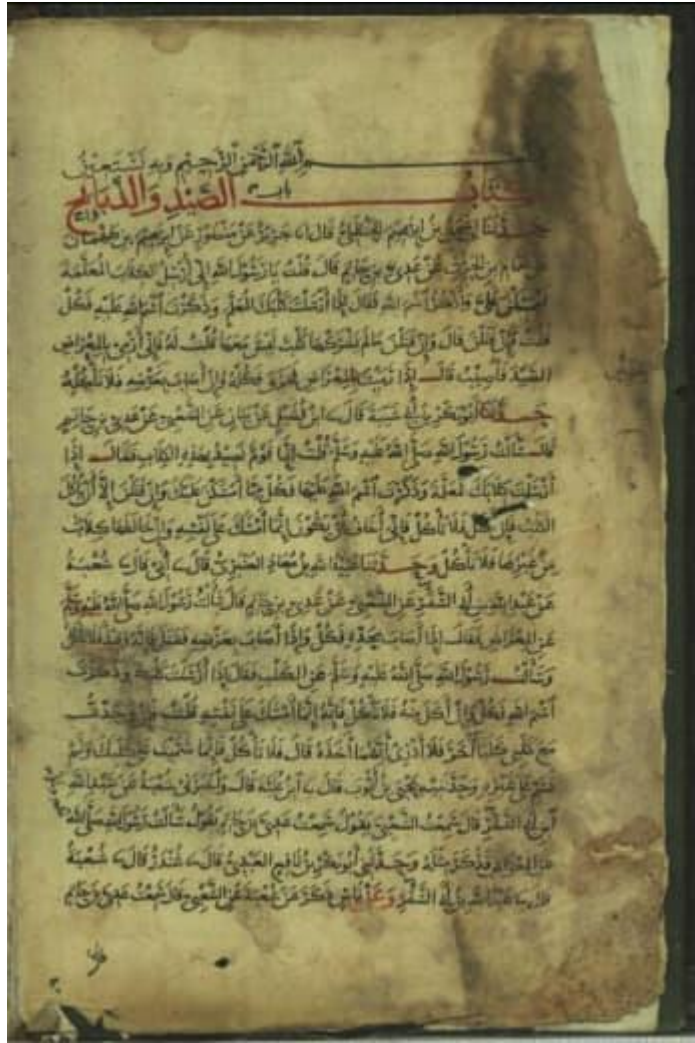 بسم الله الرحمن الرحيم وبه نستعين
كتاب الصيد والذبائح
باب
حدثنا إسحق بن إبراهيم الحنظلي قال نا جرير عن منصور عن إبرهيم
عن همام بن الحرث عن عدي بن حاتم قال قلت يا رسول الله إني أرسل الكلاب المعلمة
فيمسكن علي وأذكر اسم الله فقال إذا أرسلت كلبك المعلم وذكرت اسم الله عليه فكل
قلت وإن قتلن قال وإن قتلن ما لم يشركها كلب ليس معها قلت له فإني أرمي بالمعراض
الصيد فأصيب قال إذا رميت بالمعراض فخزق فكله وإن أصاب بعرضه فلا تأكله
حدثنا أبو بكر بن أبي شيبة قال نا ابن فضيل عن بيان عن الشعبي عن عدي بن حاتم
قال سألت رسول الله صلى الله عليه وسلم قلت إنا قوم نصيد بهذه الكلاب فقال إذا
أرسلت كلابك المعلمة وذكرت اسم الله عليها فكل مما أمسكن عليك وإن قتلن إلا أن يأكل
الكلب فإن أكل فلا تأكل فإني أخاف أن يكون إنما أمسك على نفسه وإن خالطها كلاب
من غيرها فلا تأكل وحدثنا عبيد الله بن معاذ العنبري قال نا أبي قال نا شعبة
عن عبد الله بن أبي السفر عن الشعبي عن عدي بن حاتم قال سألت رسول الله صلى الله عليه وسلم
عن المعراض فقال إذا أصاب بحده فكل وإذا أصاب بعرضه فقتل فإنه وقيذ فلا تأكل
وسألت رسول الله صلى الله عليه وسلم عن الكلب فقال إذا أرسلت كلبك وذكرت
اسم الله فكل وإن أكل منه فلا تأكل فإنه إنما أمسك على نفسه قلت فإن وجدت
مع كلبي كلبا آخر فلا أدري أيهما أخذه قال فلا تأكل فإنما سميت على كلبك ولم
تسم على غيره وحدثنيه يحيى بن أيوب قال نا ابن علية قال وأخبرني شعبة عن عبد الله
ابن أبي السفر قال سمعت الشعبي يقول سمعت عدي بن حاتم يقول سألت رسول الله صلى الله
عن المعراض فذكر مثله وحدثني أبو بكر بن نافع العبدي قال نا غندر قال نا شعبة
قال نا عبد الله بن أبي السفر وعن ناس ذكر عن شعبة عن الشعبي قال سمعت عدي بن حاتم